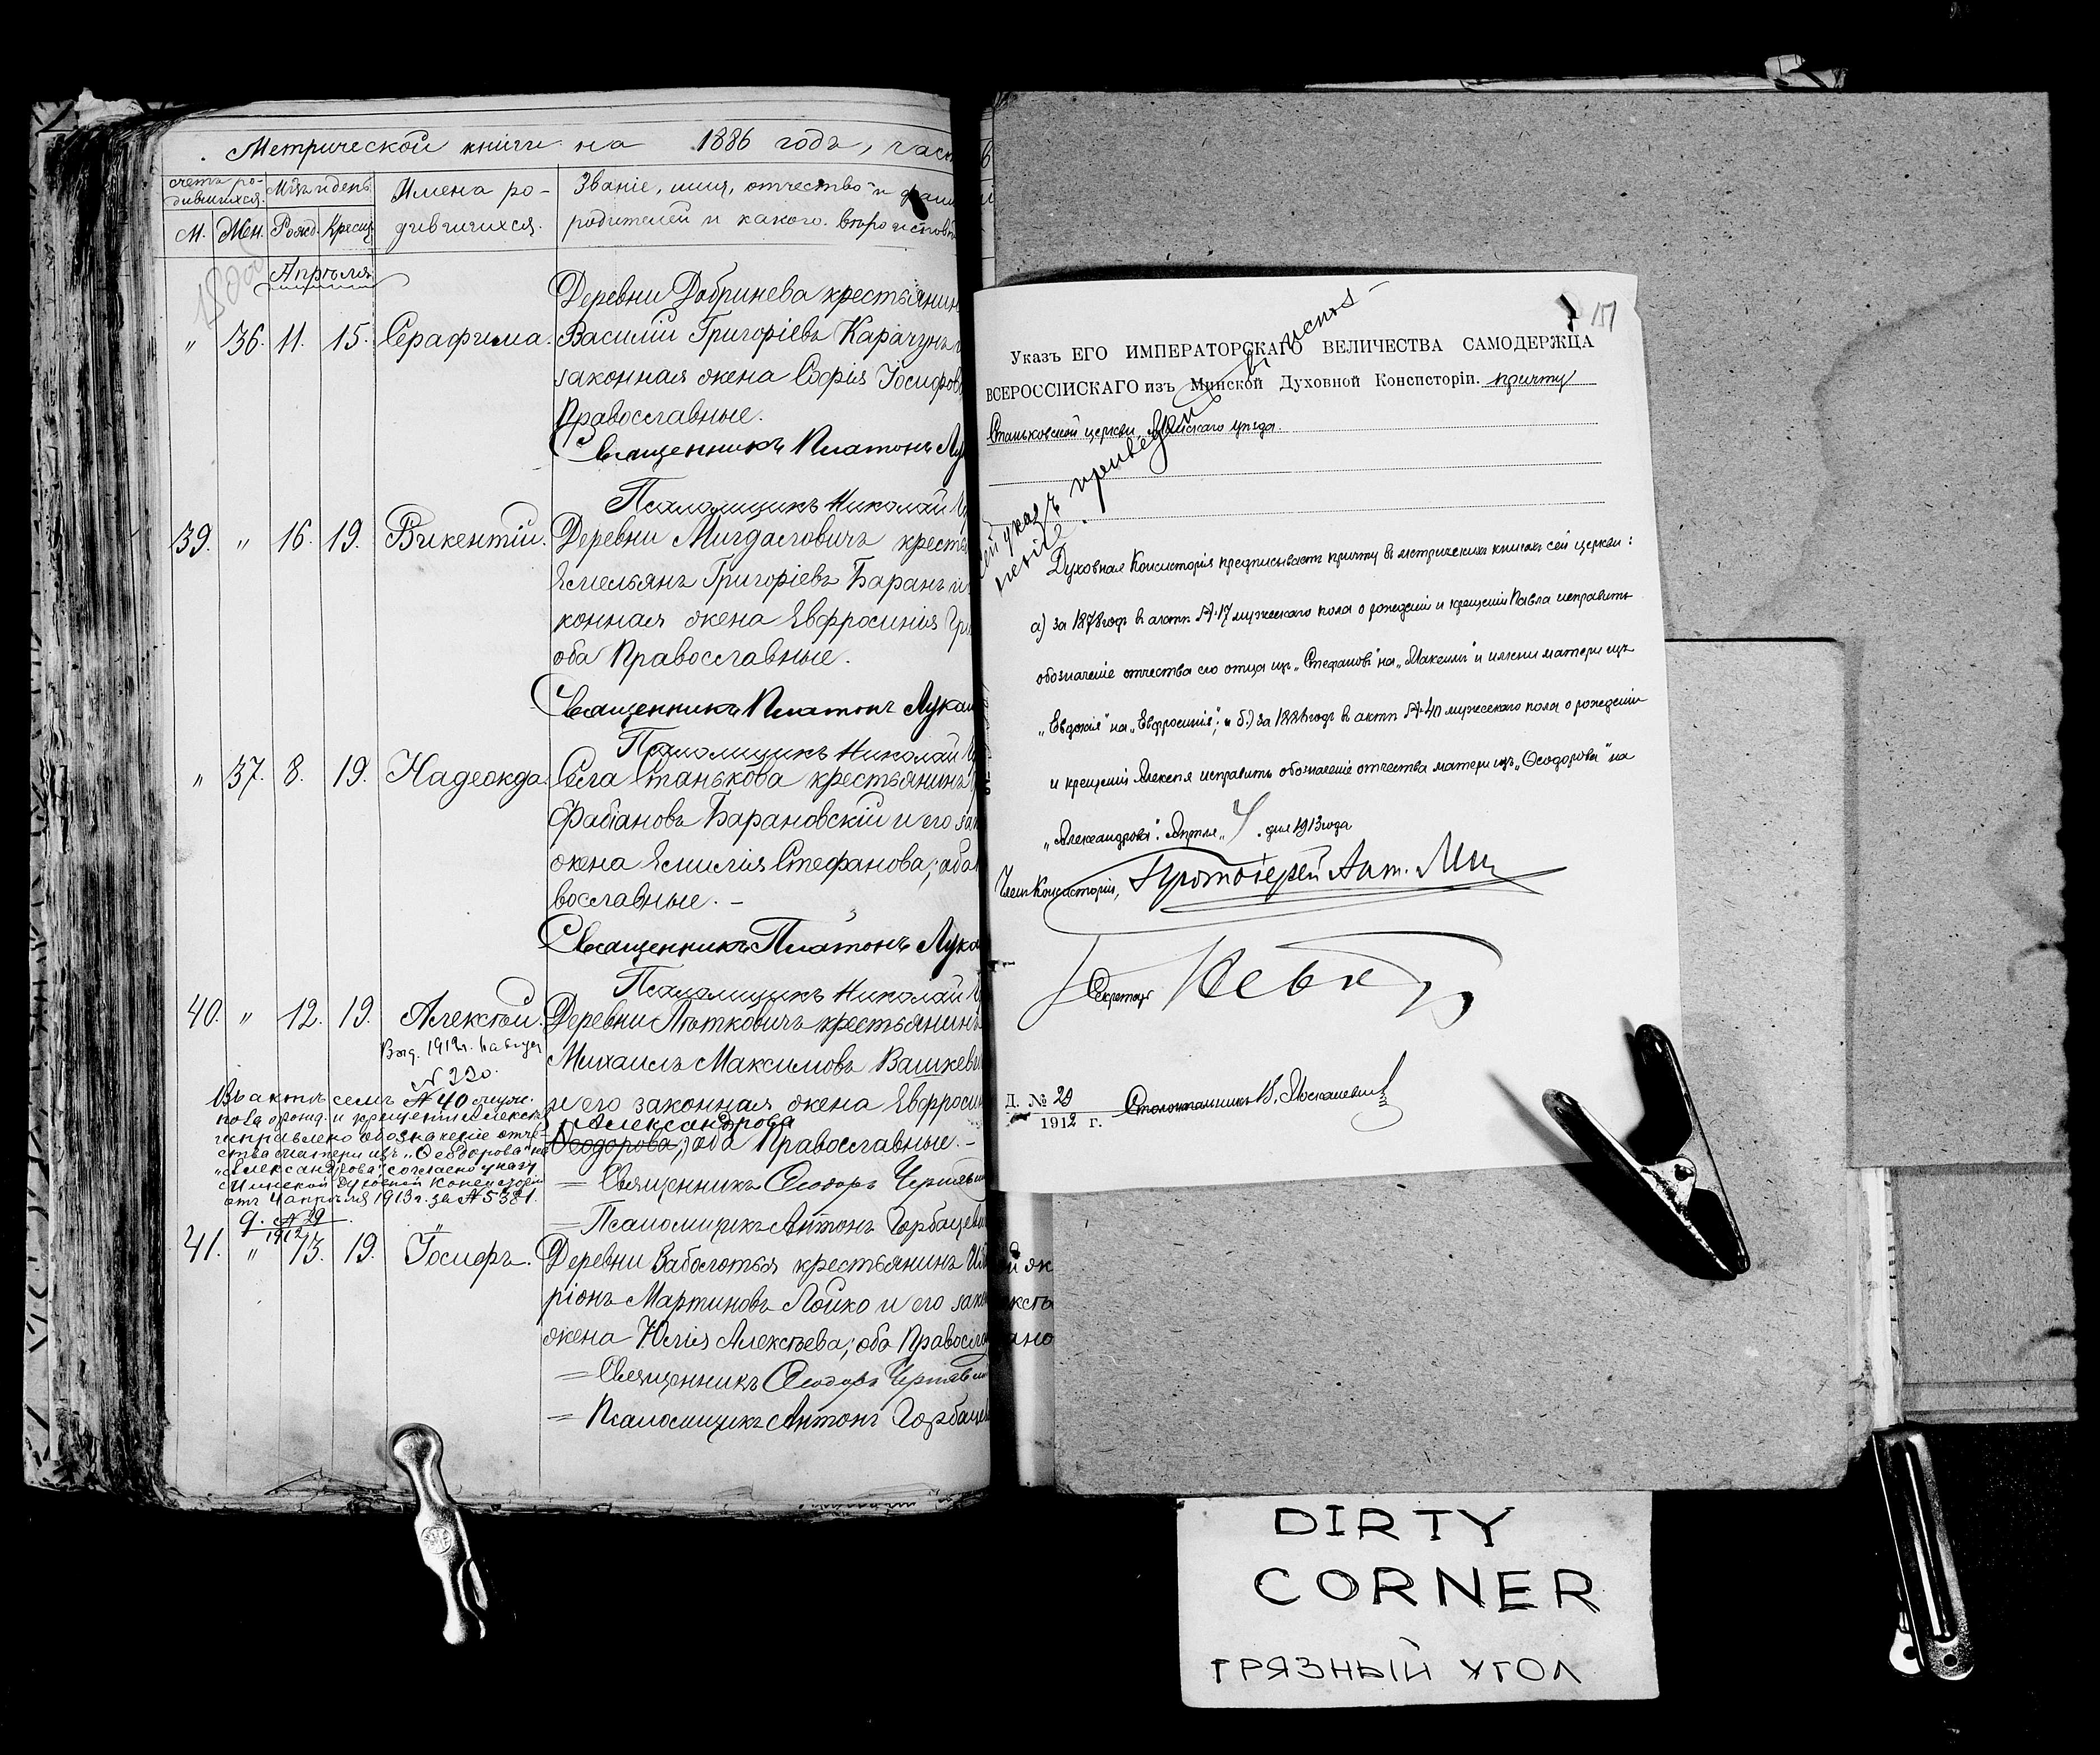 Метрической книги на 1886 годъ, час
счетъ родившихся. Мѣц. и день. Имена ро- Званіе, имя, отчество и фам
М. Жен. Рожд. Крещ. дившихся. родителей и какого вѣроисповѣ
Апрѣля
Деревни Добринева крестьянин
„ 36. 11. 15. Серафима. Василій Григоріевъ Карачунъ
законная жена Софія Іосифов
Православные.
Священникъ Платонъ Лу
Псаломщикъ Николай
39. „ 16. 19. Викентій. Деревни Мигдаловичъ кресть
Емельянъ Григоріевъ Баранъ и
конная жена Евфросинія Гри
оба Православные.
Священникъ Платонъ Лука
Псаломщикъ Николай
„ 37. 8. 19. Надежда. Села Станькова крестьянинъ
Фабіановъ Барановскій и его за
жена Емилія Стефанова; оба
вославные. –
Священникъ Платонъ Лука
Псаломщикъ Николай
40. „ 12. 19. Алексѣй. Деревни Лѣтковичъ крестьянинъ
Выд. 1912 г.
№ 220.
Михаилъ Максимовъ Вашкеви
и его законная жена Евфроси
Александрова
Ѳеодорова; оба Православные. –
= Священникъ Ѳеодоръ Чернявс
= Псаломщикъ Антонъ Горбацеви
Въ актѣ семъ № 40 муж.
пола о рожд. и крещеніи Алексѣя
исправлено обозначеніе отче-
ства матери изъ „Ѳеодорова" на
„Александрова", согласно указу
Минской Духовной Консисторіи
отъ 4 апрѣля 1913 г. за № 5381.
Д. № 29
1912
41. „ 13. 19. Іосифъ. Деревни Заболотья крестьянинъ Ил
ріонъ Мартиновъ Лойко и его зако
жена Юлія Алексѣева; оба Правосла
= Священникъ Ѳеодоръ Чернявс
= Псаломщикъ Антонъ Горбацев
151
Указъ ЕГО ИМПЕРАТОРСКАГО ВЕЛИЧЕСТВА САМОДЕРЖЦА
ВСЕРОССІЙСКАГО изъ Минской Духовной Консисторіи. причту
Станьковской церкви, Минскаго уѣзда.
Сей указъ приведен въ испол-
неніе.
Духовная Консисторія предписываетъ причту въ метрическихъ книгахъ сей церкви:
а) за 1878 годъ въ актѣ № 17 мужескаго пола о рожденіи и крещеніи Павла исправить
обозначеніе отчества его отца изъ „Стефановъ" на „Максимъ" и имени матери изъ
„Евдокія" на „Евфросинія"; и б) за 1886 годъ въ актѣ № 40 мужескаго пола о рожденіи
и крещеніи Алексѣя исправить обозначеніе отчества матери изъ „Ѳеодорова" на
„Александрова". Апрѣля „4" дня 1913 года
Членъ Консисторіи, Протоіерей Ант.
Секретарь
Д. № 29
1912 г.
Столоначальникъ В.
DIRTY
CORNER
ГРЯЗНЫЙ УГОЛ